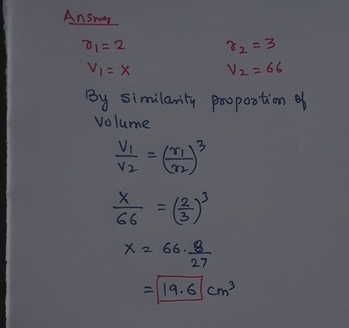 Answer
r₁ = 2 r₂ = 3
V₁ = x V₂ = 66
By similarity propostion of
volume
V₁/V₂ = (r₁/r₂)³
x/66 = (2/3)³
x = 66 . 8/27
= 19.6 cm³